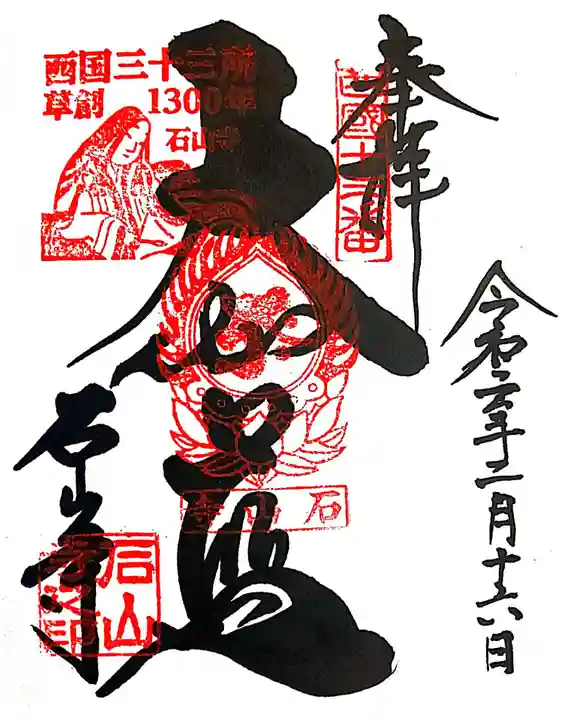 奉拝
西國十三番
令和二年二月十六日
西国三十三所
草創 1300年
石山寺
石山寺
石山寺
石山